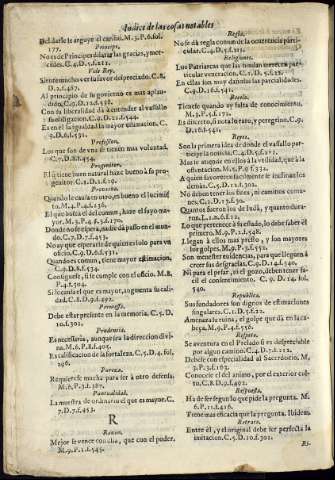 Indice de las cosas notables
Del darle se arguye el cariño. M.3.P.6.fol.
177.
Principe.
No es de Principes dilatar las gracias, y mercedes.
C.4.D.5.f.121.
Vale Rey.
Si tiene muchos versu favor despreciado. C.8.
D.2.f.487.
Al principio de su govierno es mas aplaudido.
C.9.D.12.f.538.
Con la liberalidad dà a entender al vassallo
su
Es en el la igualdad la mayor estimacion. C.
9.D.6.f.531.
Professores.
Los que son de vna se tienen mas voluntad.
C.7.D.8.f.454.
Progenitor.
El q tiene buen natural haze bueno à su progenitor.
C.1.D.1.f.12.
Provecho.
M.2.P.4.f.136.
El que busca el del comun, haze el suyo mayor.
M.3.P.4.f.5.170.
Donde no se espera, no se dà passo en el mundo.
C.7.D.7.f.453.
No ay que esperarle de quien es solo para vn
oficio. C.9.D.6.f.531.
Quando es comun, tiene mayor estimacion.
C.9.D.8.f.534.
Consiguese, si se cumple con el oficio. M.8.
P.4.f.304.
Si se comia el que es mayor, augmenta su calidad.
C.8.D.9.f.492.
Promessa.
Debe estar presente en la memoria. C.5.D.
10.f.301.
Prudencia.
Es necessaria, aunque sea la direccion divina.
M.6.P.8.f.405.
Es calificacion de la fortaleza. C.5.D.4.fol.
296.
Pureza.
Requierese mucha para ser à otro defensa.
M.6.P.3.f.387.
Puntualidad.
La muestra de ordinario el que es mayor. C.
7.D.7.f.453.
R
Razon.
Mejor se vence con ella, que con el poder.
M.9.P.11.f.545.
Regla.
No se dà regla comun de la ocurrencia particular.
C.4.D.5.f.123.
Religiones.
Los Patriarcas que las fundan merecen particular
veneracion. C.1.D.5.f.15.
En ellas no han de dañar las parcialidades.
C.9.D.16.f.541.
Rezelo.
Tienese quando ay falta de conocimiento.
M.3.P.5.f.173.
Es dañoso el tardo, y no el preciso. C.9.D.
16.f.541.
Reyes.
Son la primera idea de donde el vassallo participa
la noticia. C.4.D.5.f.121.
Mas se atiende en ellos à la vtilidad, que à la
ostentacion. M.5.P.9.f.332.
A quien favorecen facilmente se inclinan los
demàs. C.5.D.12.f.302.
No deben tener los fines, ni caminos comunes.
C.1.D.3.f.30.
Quantos fueron los de Iudà, y quanto duraron.
L.1.n.6.f.2.
Lo que pertenece à su estado, lo debe saber el
primero. M.9.P.1.f.548.
Llegan à ellos mas presto, y son mayores
los golpes. M.9.P.3.f.552.
Son menester evidencias, para que lleguen à
creer las desgracias. C.9.D.14.f.540.
Ni para el pesar, ni el gozo, deben tener facil
el consentimiento. C. 9. D. 14. fol.
540.
Republica.
Sus fundadores son dignos de estimaciones
singulares. C.1.D.5.f.22.
Amenaza la ruina, el golpe que dà en la cabeça.
M.9.P.4.f.556.
Respeto.
Se aventura en el Prelado si es despreciable
por algun camino. C.4.D.2.f.112.
Debese con especialidad al Sacerdocio. M.
3.P.3.f.161.
Conocese el del animo, por el exterior culto.
C.8.D.9.f.402.
Respuesta.
Ha de ser segun lo que pide la pregunta. M.
6.P.11.f.416.
Tiene mas eficacia que la pregunta. Ibidem.
Retrato.
Entre èl, y el original debe ser perfecta la
imitacion. C.5.D.10.f.302.
Ri-